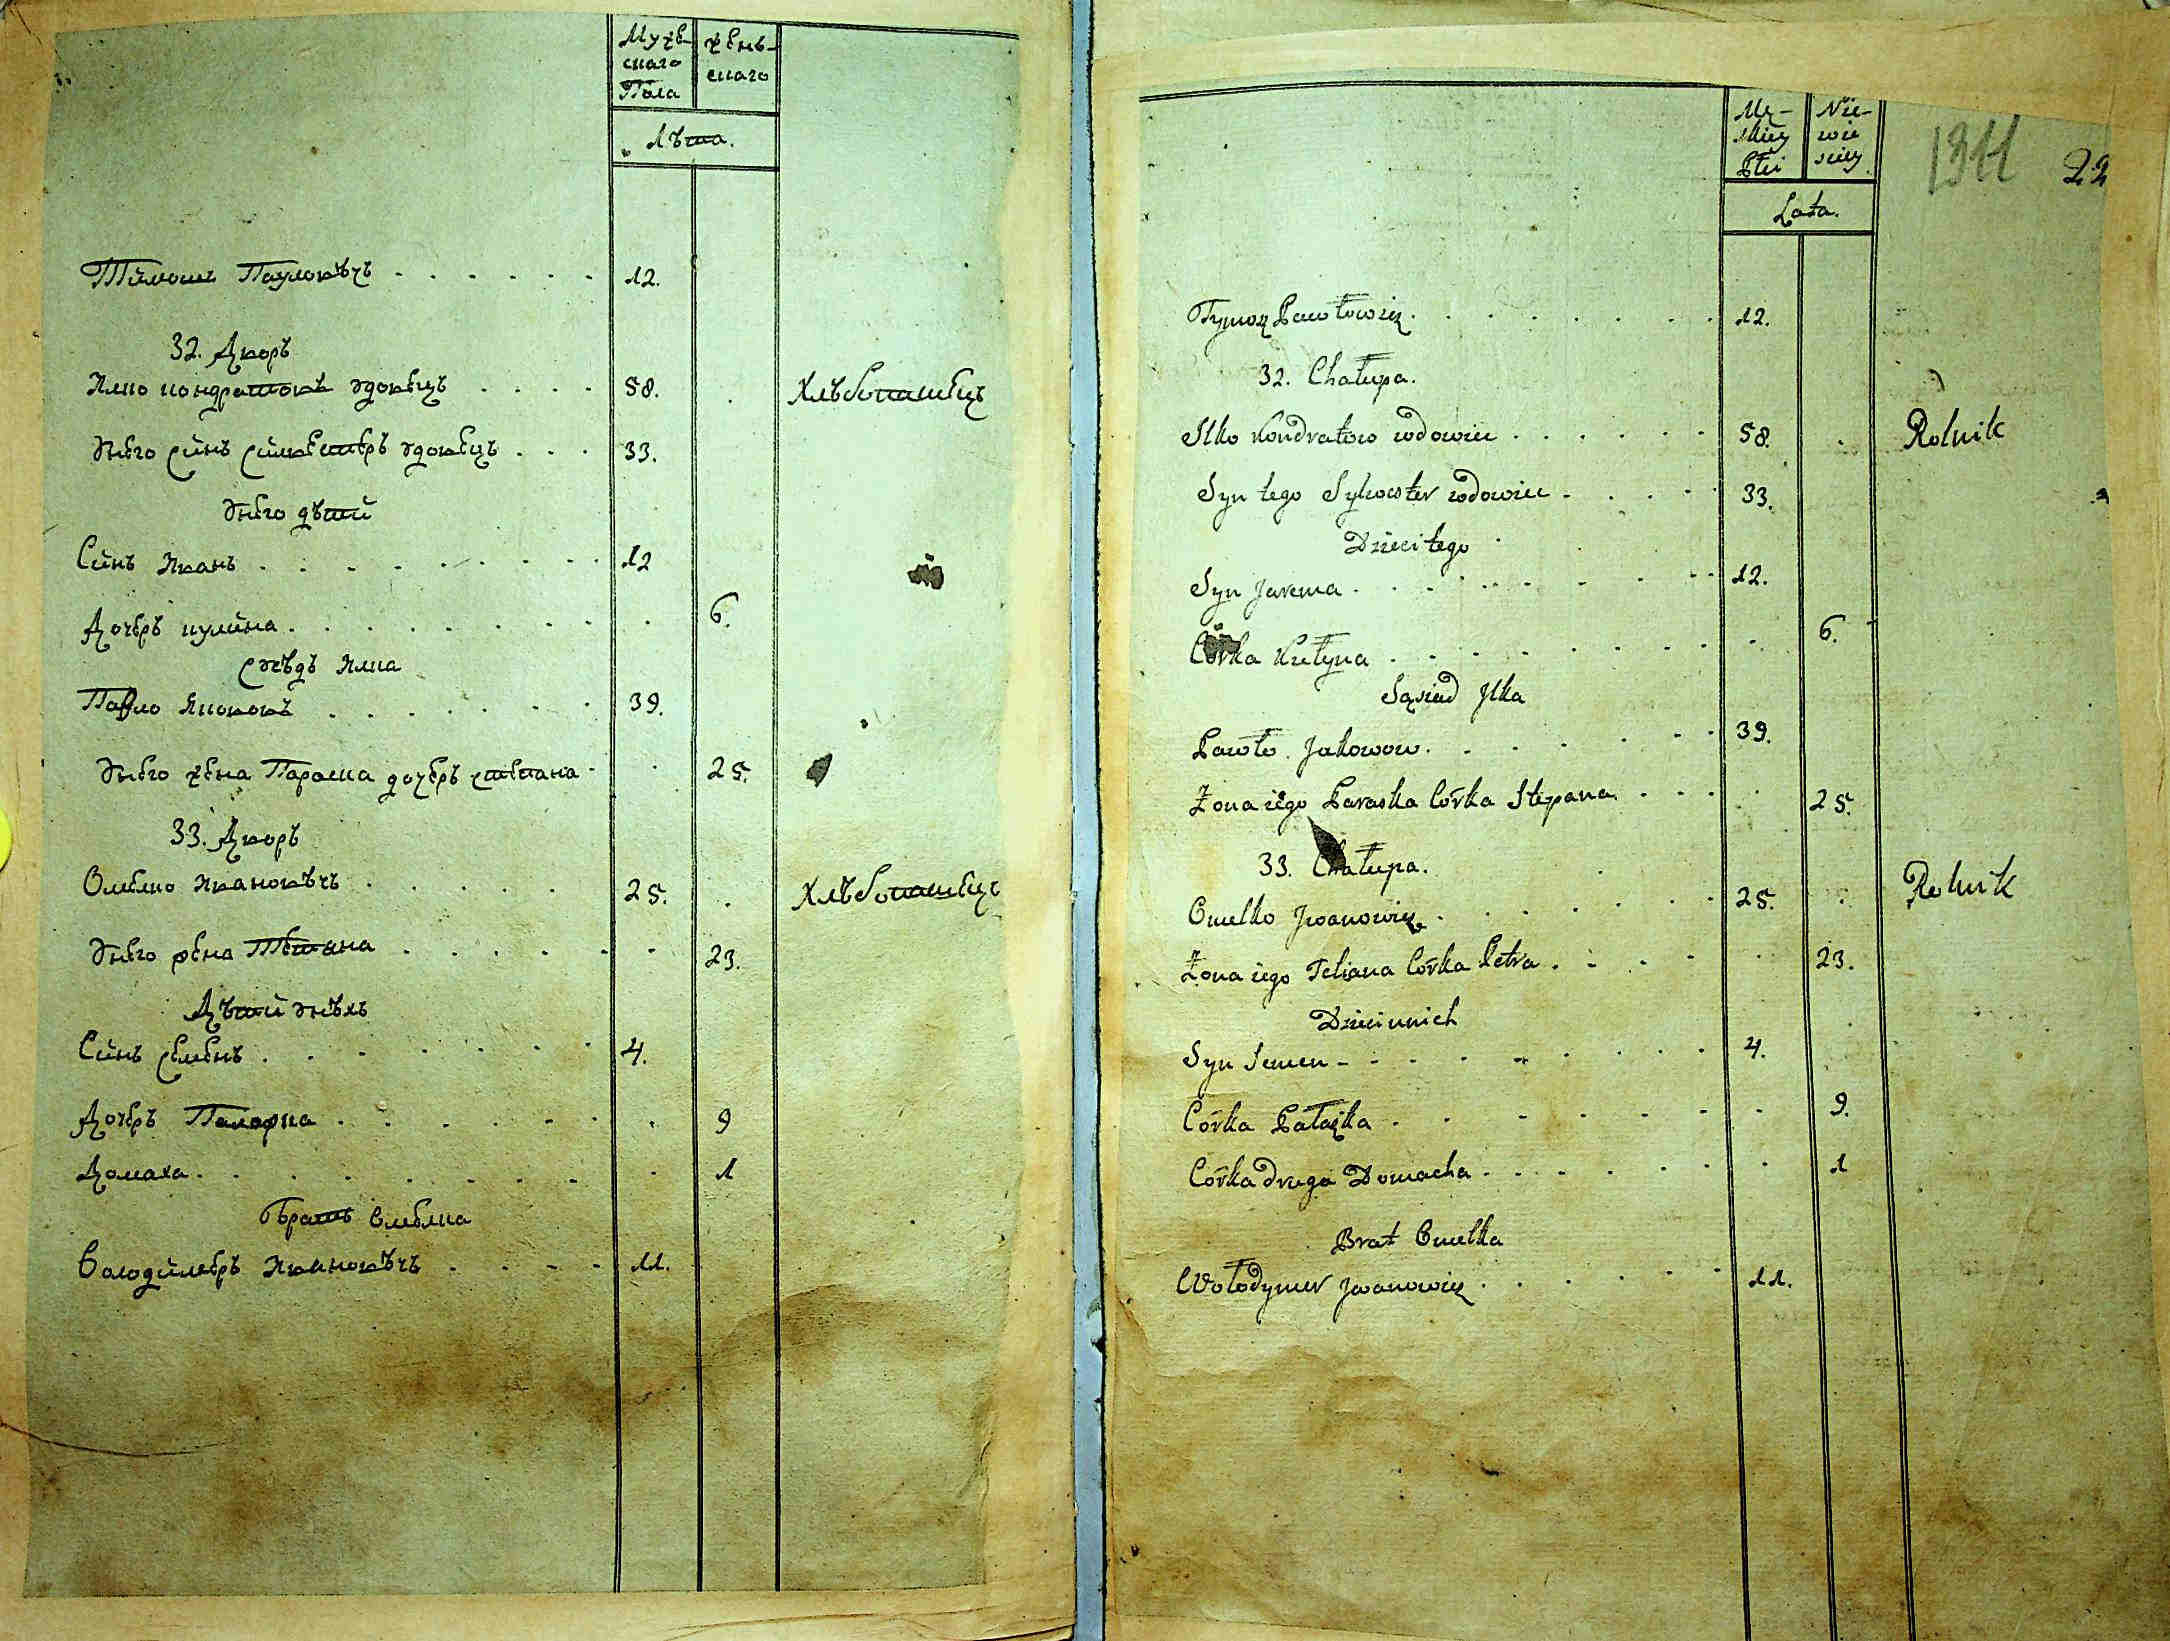 Мужеского Пола
женьскаго
Лѣта.
Тимошъ Паулокѣчъ 12.
32. Дворъ
Илко кондратовъ удовецъ 58. Хлѣбопашецъ
Унего синъ силвестеръ удовецъ 33.
Унего дѣти
Синъ Иванъ 12
Дочеръ кулина 6.
сусѣдъ Илка
Павло Якововъ 39.
Унего жена Параска дочеръ степана 25.
33. Дворъ
Омелко Ивановѣчъ 25. Хлѣбопашецъ
Унего жена Тетиана 23.
Дѣти унѣхъ
Синъ семенъ 4.
Дочеръ Палажка 9
Домаха 1
Братъ Омелка
Володимеръ Ивановѣчъ 11.
Mę-skiey Płci
Nie-wie sciey
Lata.
1311 22
Tymosz Pawłowicz 12.
32. Chałupa.
Ilko Kondratow wdowiec 58. Rolnik
Syn tego Sylwester wdowiec 33.
Dzieci tego
Syn Jarema 12.
Córka Kulyna 6.
Sąsiad Ilka
Pawło Jakowow 39.
Żona iego Paraska Córka Stepana 25.
33. Chałupa.
Omelko Jwanowicz 25. Rolnik
Żona iego Tetiana Córka Petra 23.
Dzieci unich
Syn Semen 4.
Córka Pałażka 9.
Córka druga Domacha 1
Brat Omelka
Wołodymer Jwanowicz 11.